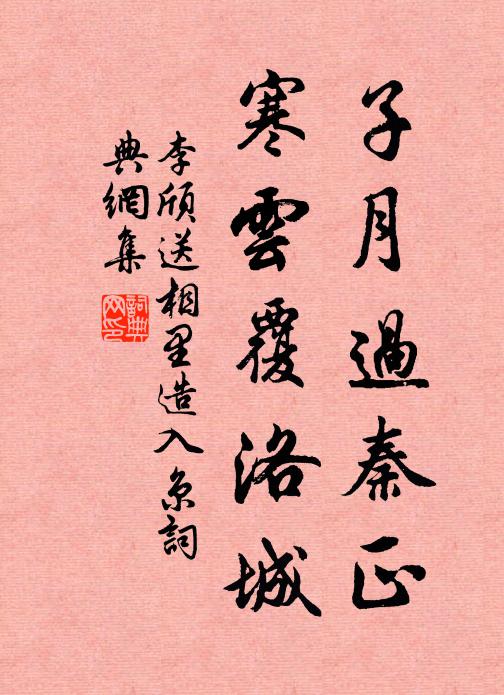 子月過秦正
寒雲覆洛城
李頎送相里造入京詞
典網集
詞典
网印